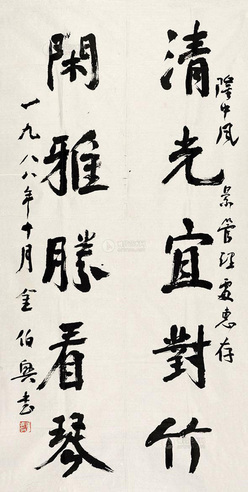 隆中风景管理处惠存
清光宜對竹
閑雅勝看琴
一九八八年十月金伯興書